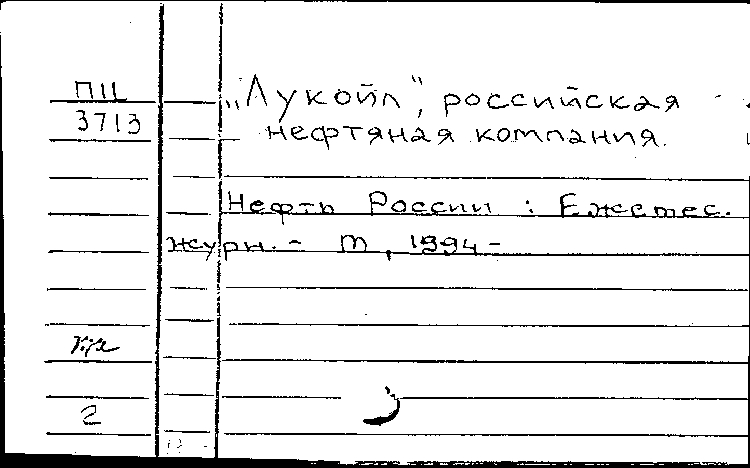 П11
3713
„Лукойл", российская
нефтяная компания.
Нефть России : Ежемес.
журн. - М, 1994 -
2